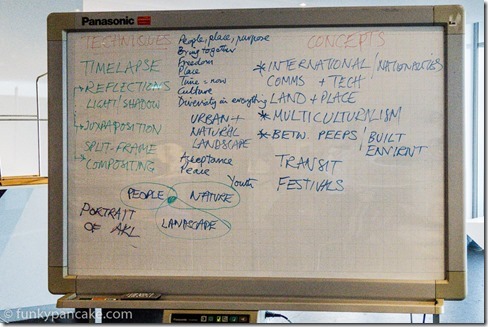 Panasonic
TECHNIQUES
TIMELAPSE
REFLECTIONS
LIGHT/SHADOW
JUXTAPOSITION
SPLIT-FRAME
COMPOSITING
People, place, purpose
Bring together
Freedom
Place
Time = now
Culture
Diversity in everything
URBAN +
NATURAL
LANDSCAPE
Acceptance
Peace
Youth
CONCEPTS
* INTERNATIONAL / NATIONALITIES
COMMS + TECH
LAND + PLACE
* MULTICULTURALISM
* BETW. PEEPS / BUILT
ENVIRNT
TRANSIT
FESTIVALS
PEOPLE
NATURE
LANDSCAPE
PORTRAIT
OF AKL
© funkypancake.com
Panasonic